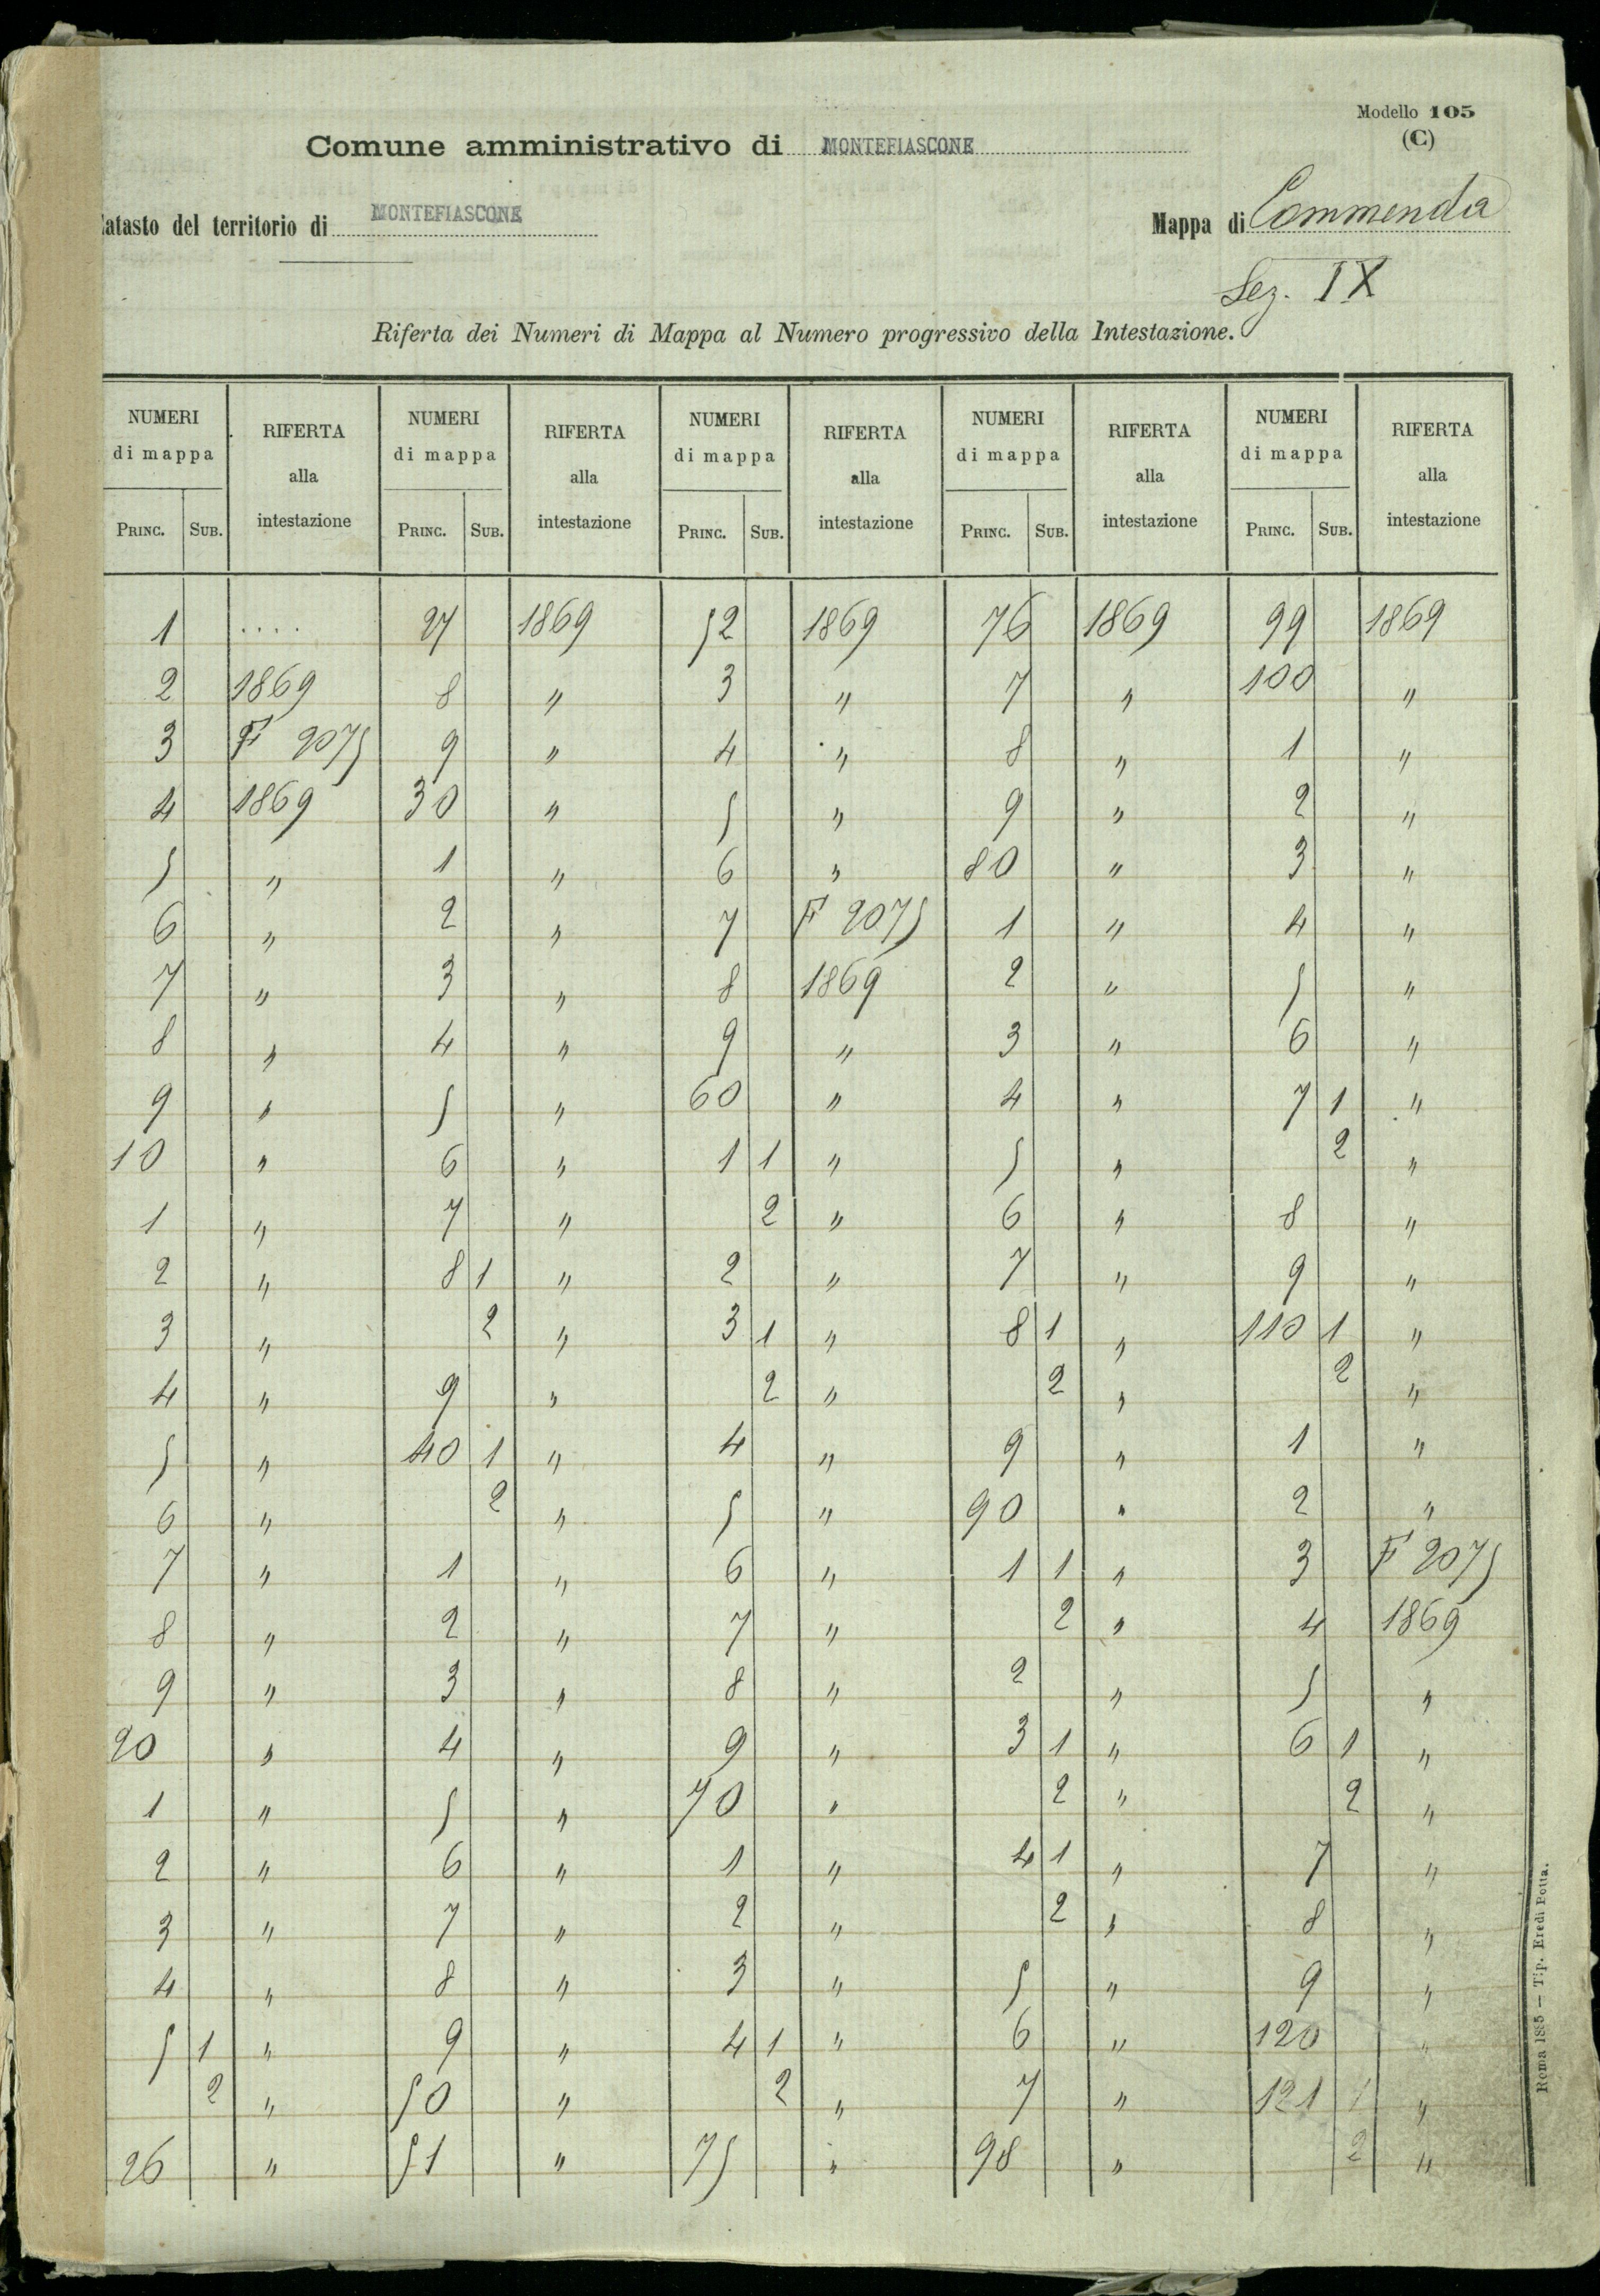 Modello 105
(C)
Comune amministrativo di MONTEFIASCONE
atasto del territorio di MONTEFIASCONE
Mappa di Commenda
Sez. IX
Riferta dei Numeri di Mappa al Numero progressivo della Intestazione.
NUMERI di mappa RIFERTA alla intestazione NUMERI di mappa RIFERTA alla intestazione NUMERI di mappa RIFERTA alla intestazione NUMERI di mappa RIFERTA alla intestazione NUMERI di mappa RIFERTA alla intestazione
PRINC. SUB. PRINC. SUB. PRINC. SUB. PRINC. SUB. PRINC. SUB.
1 .... 27 1869 52 1869 76 1869 99 1869
2 1869 8 " 3 " 7 " 100 "
3 F 2075 9 " 4 " 8 " 1 "
4 1869 30 " 5 " 9 " 2 "
5 " 1 " 6 " 80 " 3 "
6 " 2 " 7 F 2075 1 " 4 "
7 " 3 " 8 1869 2 " 5 "
8 " 4 " 9 " 3 " 6 "
9 " 5 " 60 " 4 " 7 1 "
10 " 6 " 1 1 " 5 " 2 "
1 " 7 " 2 " 6 " 8 "
2 " 8 1 " 2 " 7 " 9 "
3 " 2 " 3 1 " 8 1 " 110 1 "
4 " 9 " 2 " 2 " 2 "
5 " 40 1 " 4 " 9 " 1 "
6 " 2 " 5 " 90 " 2 "
7 " 1 " 6 " 1 1 " 3 F 2075
8 " 2 " 7 " 2 " 4 1869
9 " 3 " 8 " 2 " 5 "
20 " 4 " 9 " 3 1 " 6 1 "
1 " 5 " 70 " 2 " 2 "
2 " 6 " 1 " 4 1 " 7 "
3 " 7 " 2 " 2 " 8 "
4 " 8 " 3 " 5 " 9 "
5 1 " 9 " 4 1 " 6 " 120 "
2 " 50 " 2 " 7 " 121 1 "
26 " 51 " 75 " 98 " 2 "
Roma 1885 — Tip. Eredi Botta.